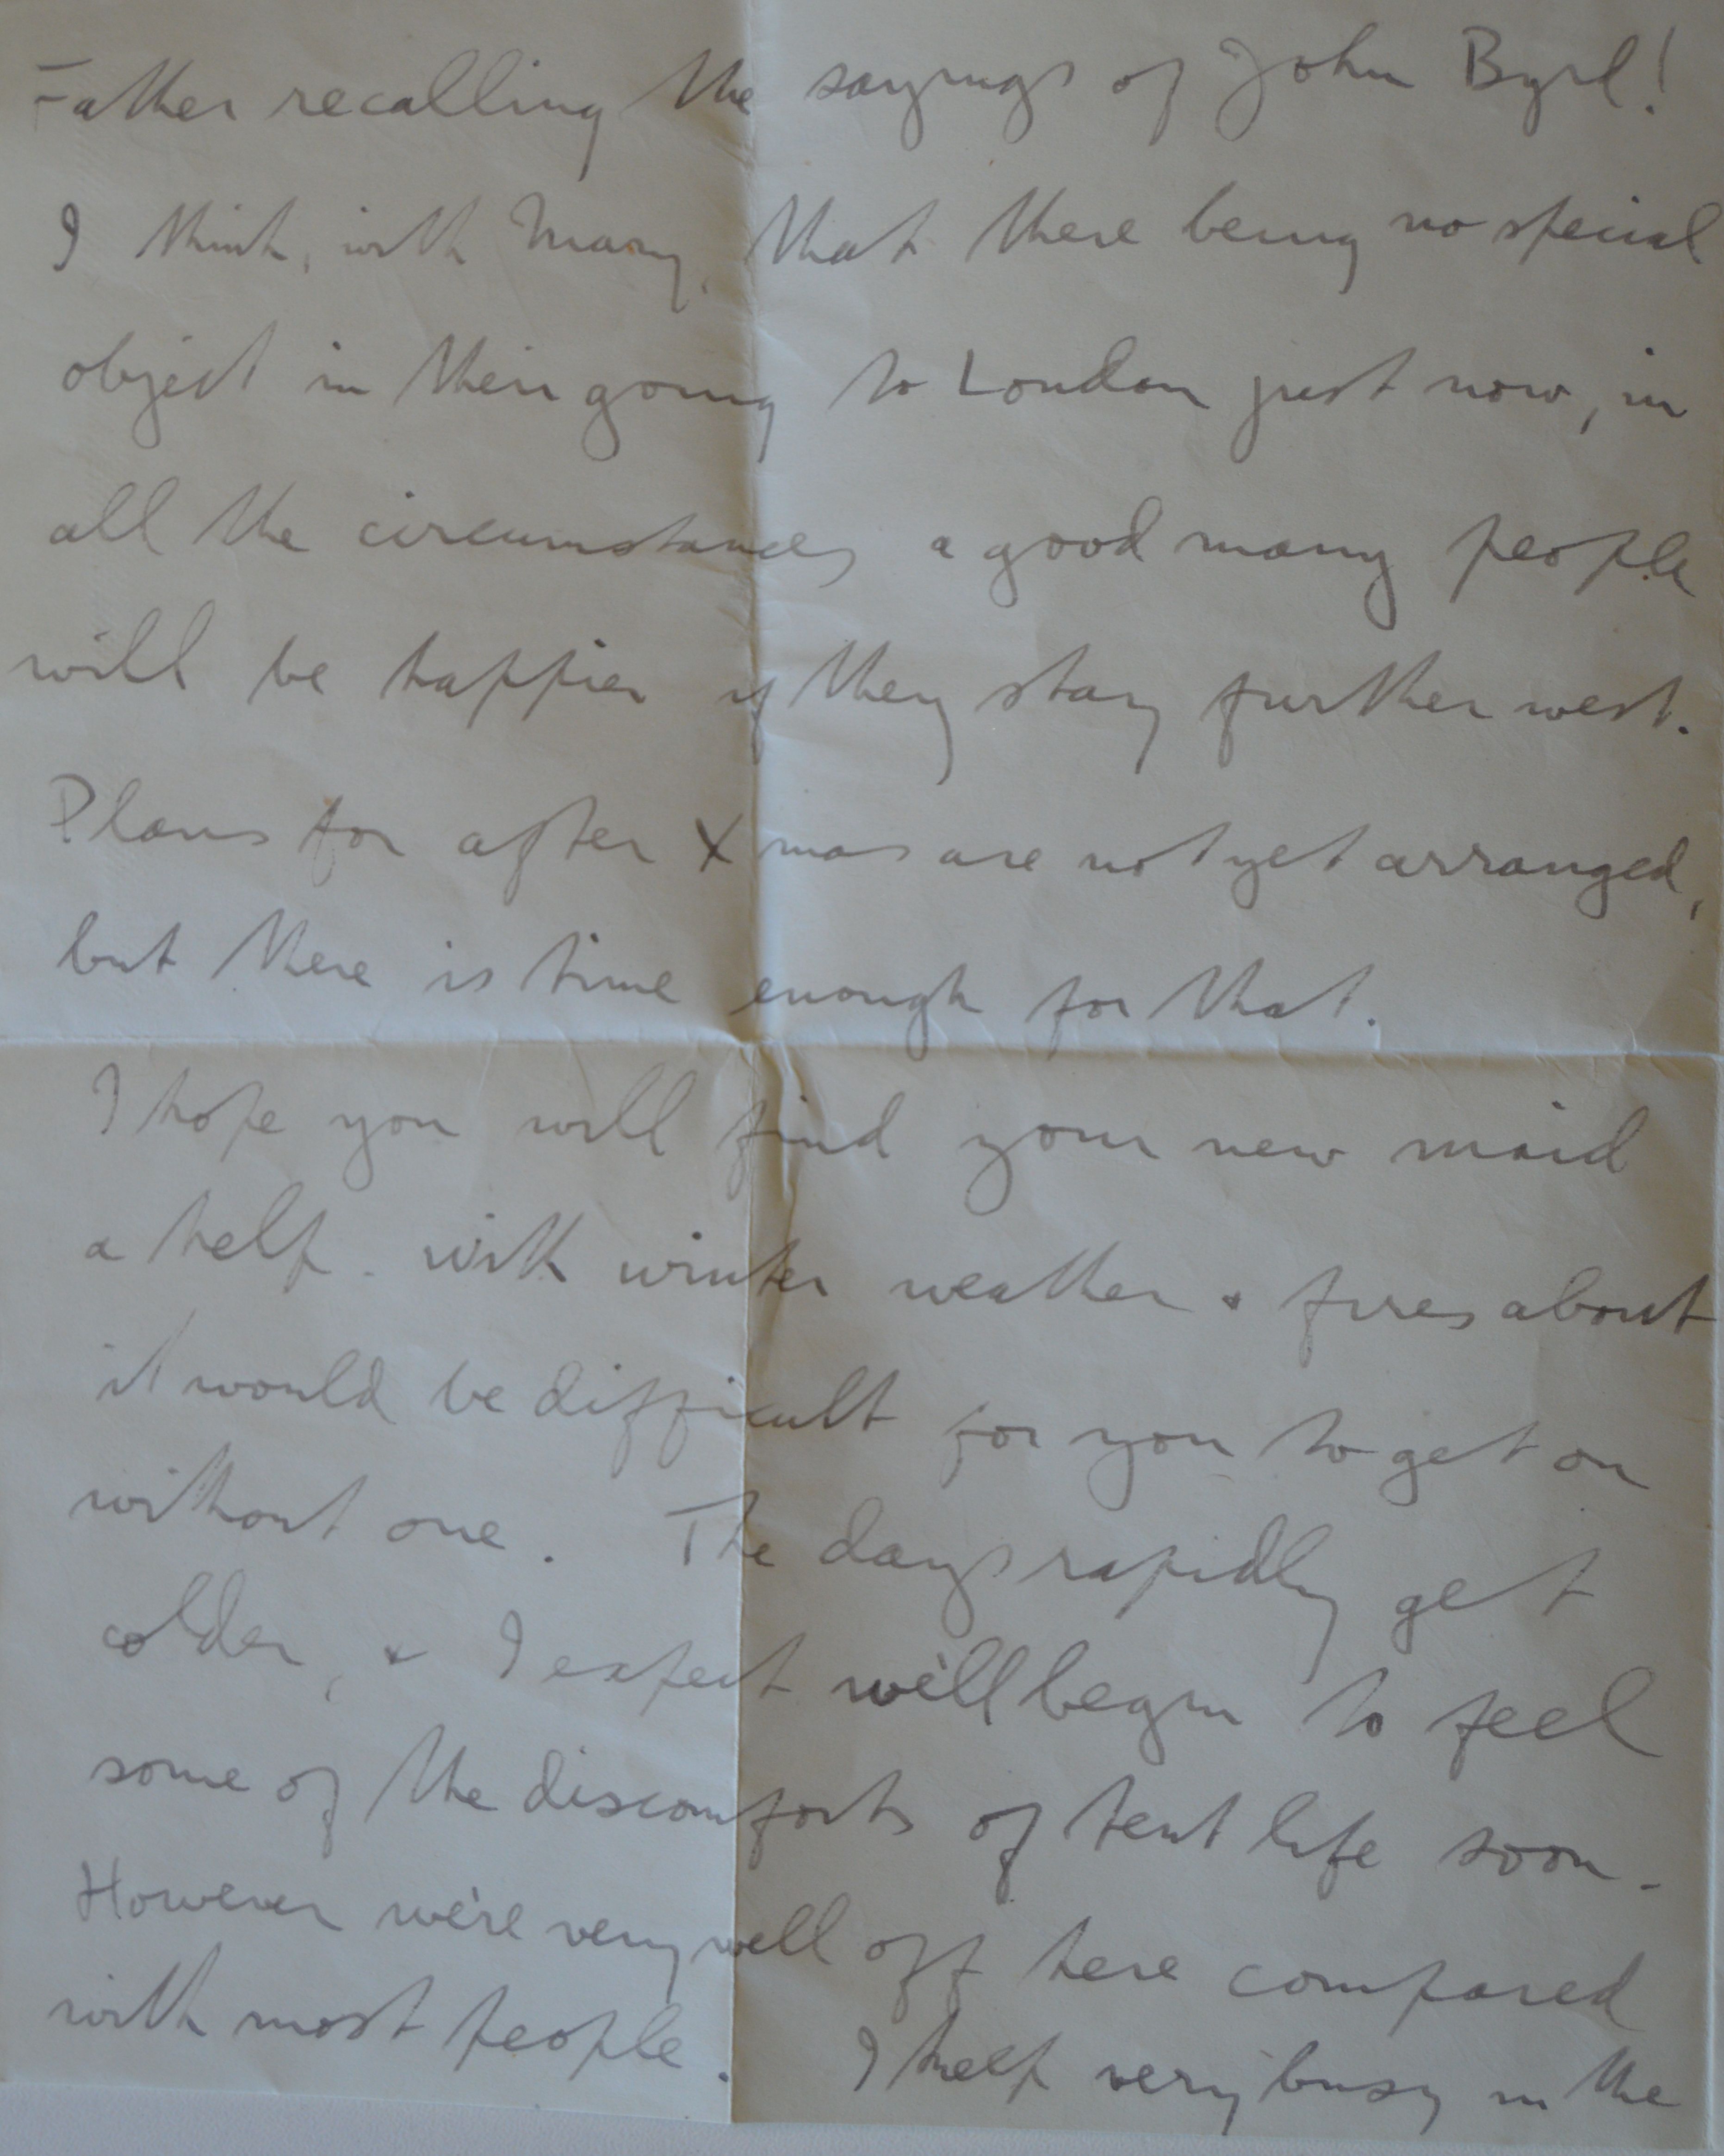 Father recalling the sayings of John Byrl!
I think, with Mary, that there being no special
object in their going to London just now, in
all the circumstances a good many people
will be happier if they stay further west.
Plans for after Xmas are not yet arranged,
but there is time enough for that.
I hope you will find your new maid
a help. with winter weather & fires about
it would be difficult for you to get on
without one. The days rapidly get
colder, & I expect we'll begin to feel
some of the discomforts of tent life soon.
However we're very well off here compared
with most people. I keep very busy in the